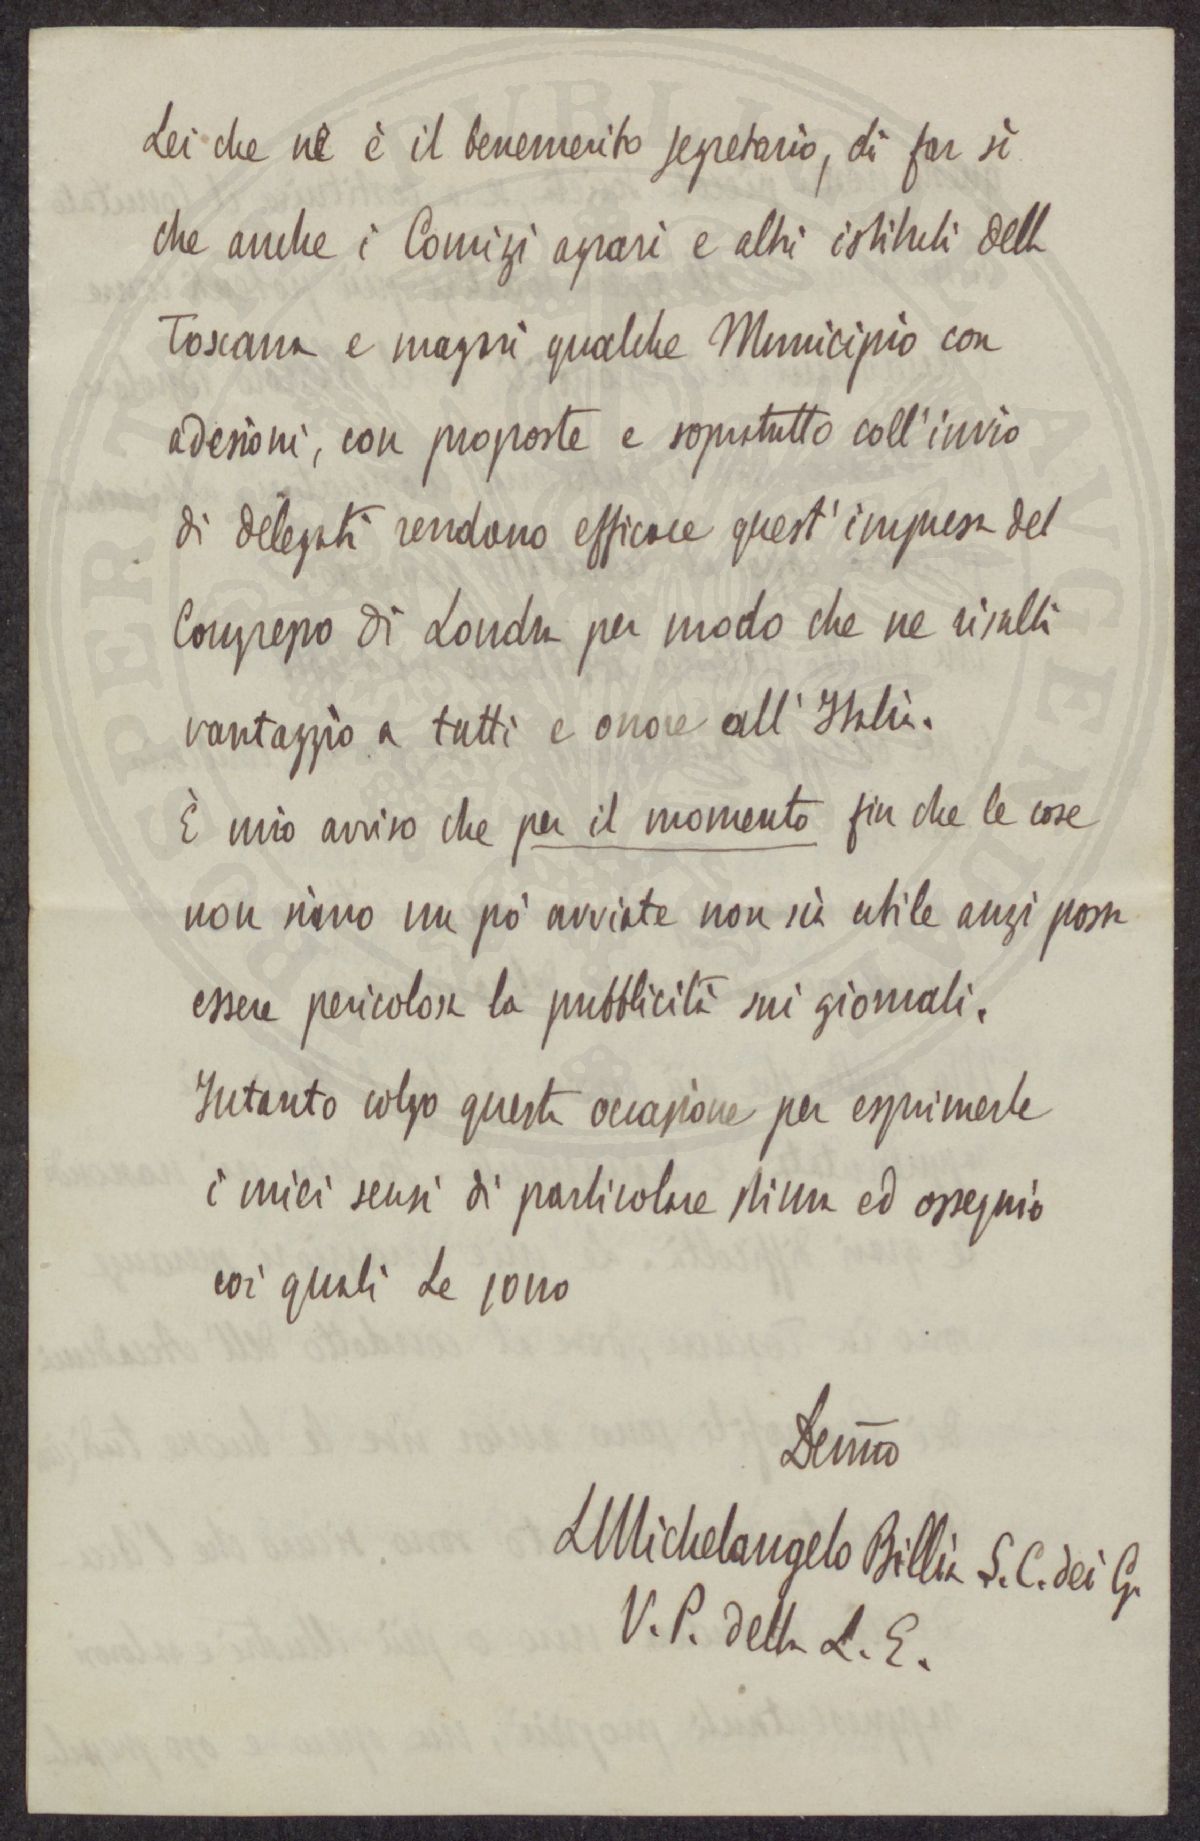 Lei che ne è il benemerito segretario, di far sì
che anche i Comizi agrari e altri istituti della
Toscana e magari qualche Municipio con
adesioni, con proposte e sopratutto coll'invio
di delegati rendano efficace quest'impresa del
Congresso di Londra per modo che ne risulti
vantaggio a tutti e onore all'Italia.
È mio avviso che per il momento fin che le cose
non siano un pò avviate non sia utile anzi possa
essere pericolosa la pubblicità sui giornali.
Intanto colgo questa occasione per esprimerle
i miei sensi di particolare stima ed ossequio
coi quali Le sono
Devmo
L Michelangelo Billia S. C. dei G.
V. P. della L. E.